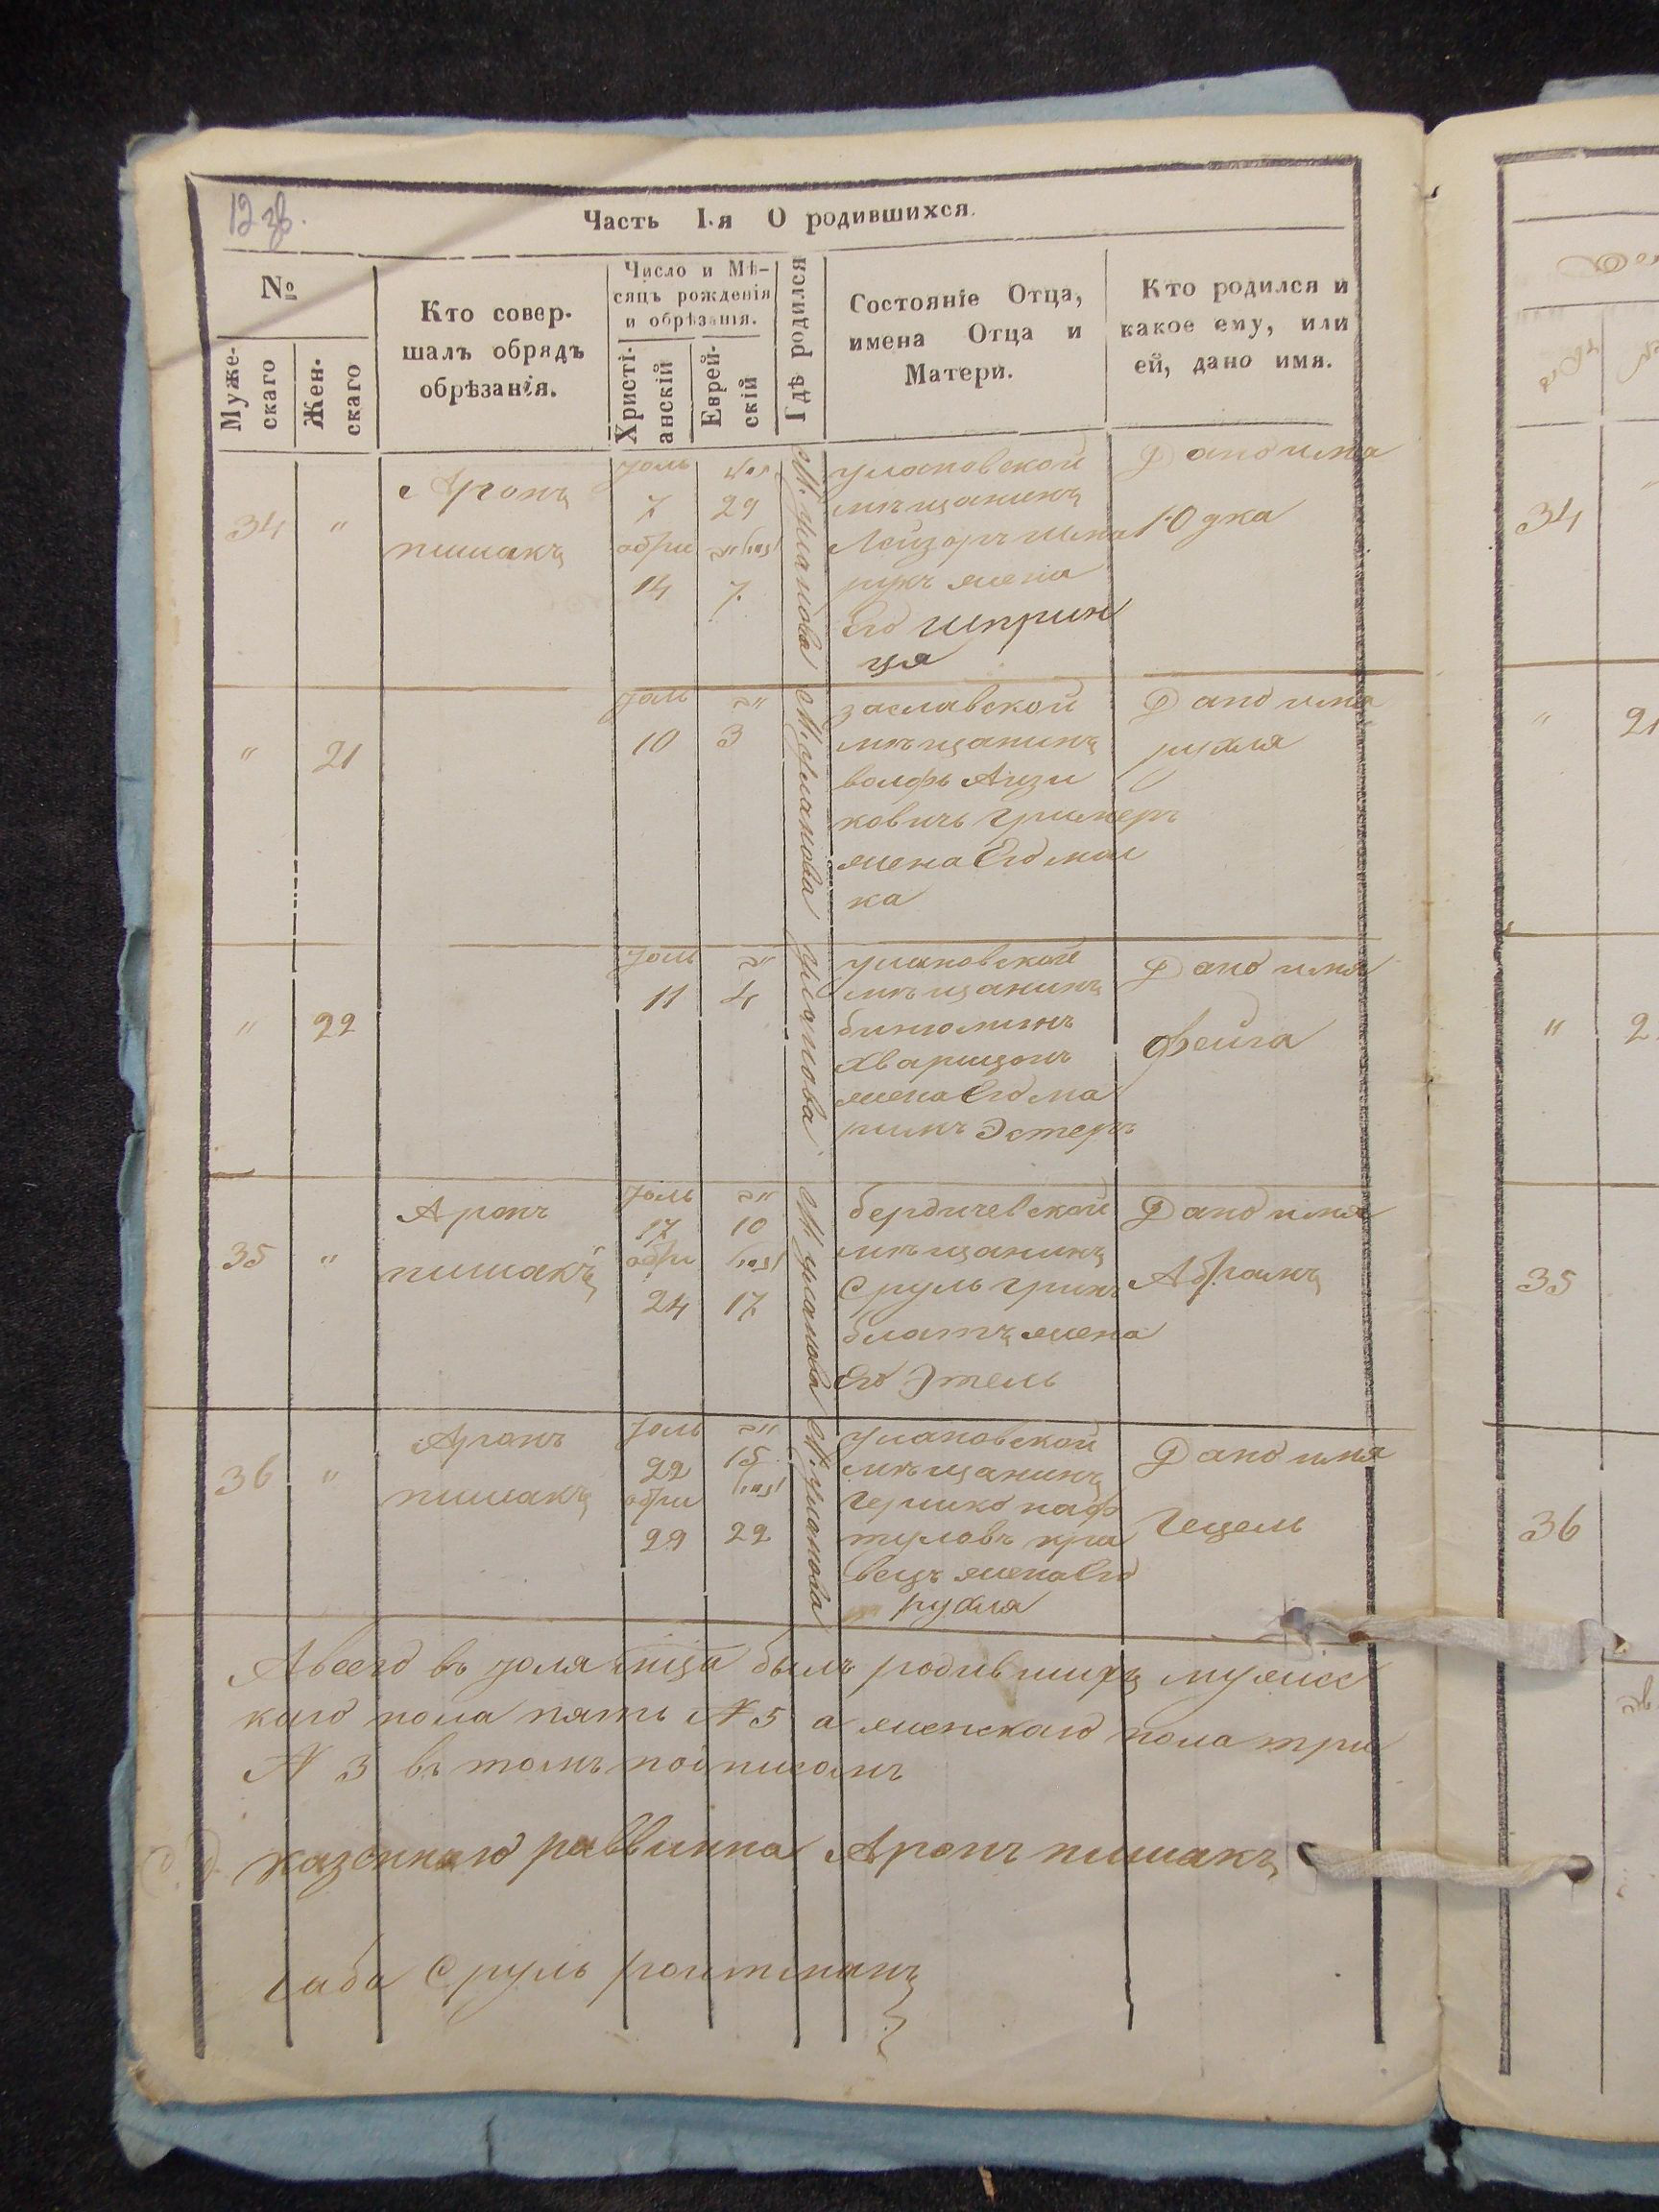 12 зв.
Часть I.я О родившихся.
№
Муже-
скаго
Жен-
скаго
Кто совер-
шалъ обрядъ
обрѣзанія.
Число и Мѣ-
сяцъ рожденія
и обрѣзанія.
Христі-
анскій
Еврей-
скій
Гдѣ родился
Состояніе Отца,
имена Отца и
Матери.
Кто родился и
какое ему, или
ей, дано имя.
34 "
Аронъ
пишакъ
Юль
7
обри
14
29
7
М. уланова
улановской
мѣщанинъ
Лейзоръ
жена
Его шприн
ця
Дано имя
Юдка
" 21
Юль
10
3
М. уланова
заславской
мѣщанинъ
волфъ Айзи
ковичъ
жена Его мал
ка
Дано имя
рухля
" 22
Юль
11
4
уланова
улановской
мѣщанинъ
бинюминъ
жена Его ма
риимъ Эстеръ
Дано имя
фейга
35 "
Аронъ
пишакъ
Юль
17
обри
24
10
17
М уланова
бердичевской
мѣщанинъ
Сруль грин
блатъ жена
Его Этель
Дано имя
Абрамъ
36 "
Аронъ
пишакъ
Юль
22
обри
29
15
22
М. уланова
улановской
мѣщанинъ
Гершко наф
туловъ кра
вецъ жена Его
рухля
Дано имя
Гецель
Авсего въ Юля мца былъ родившихъ мужес
каго пола пять № 5 а женскаго пола три
№ 3 въ томъ подписомъ
казеннаго раввина Аронъ пишакъ
габа Сруль ройтманъ
34
"
"
21
"
35
36